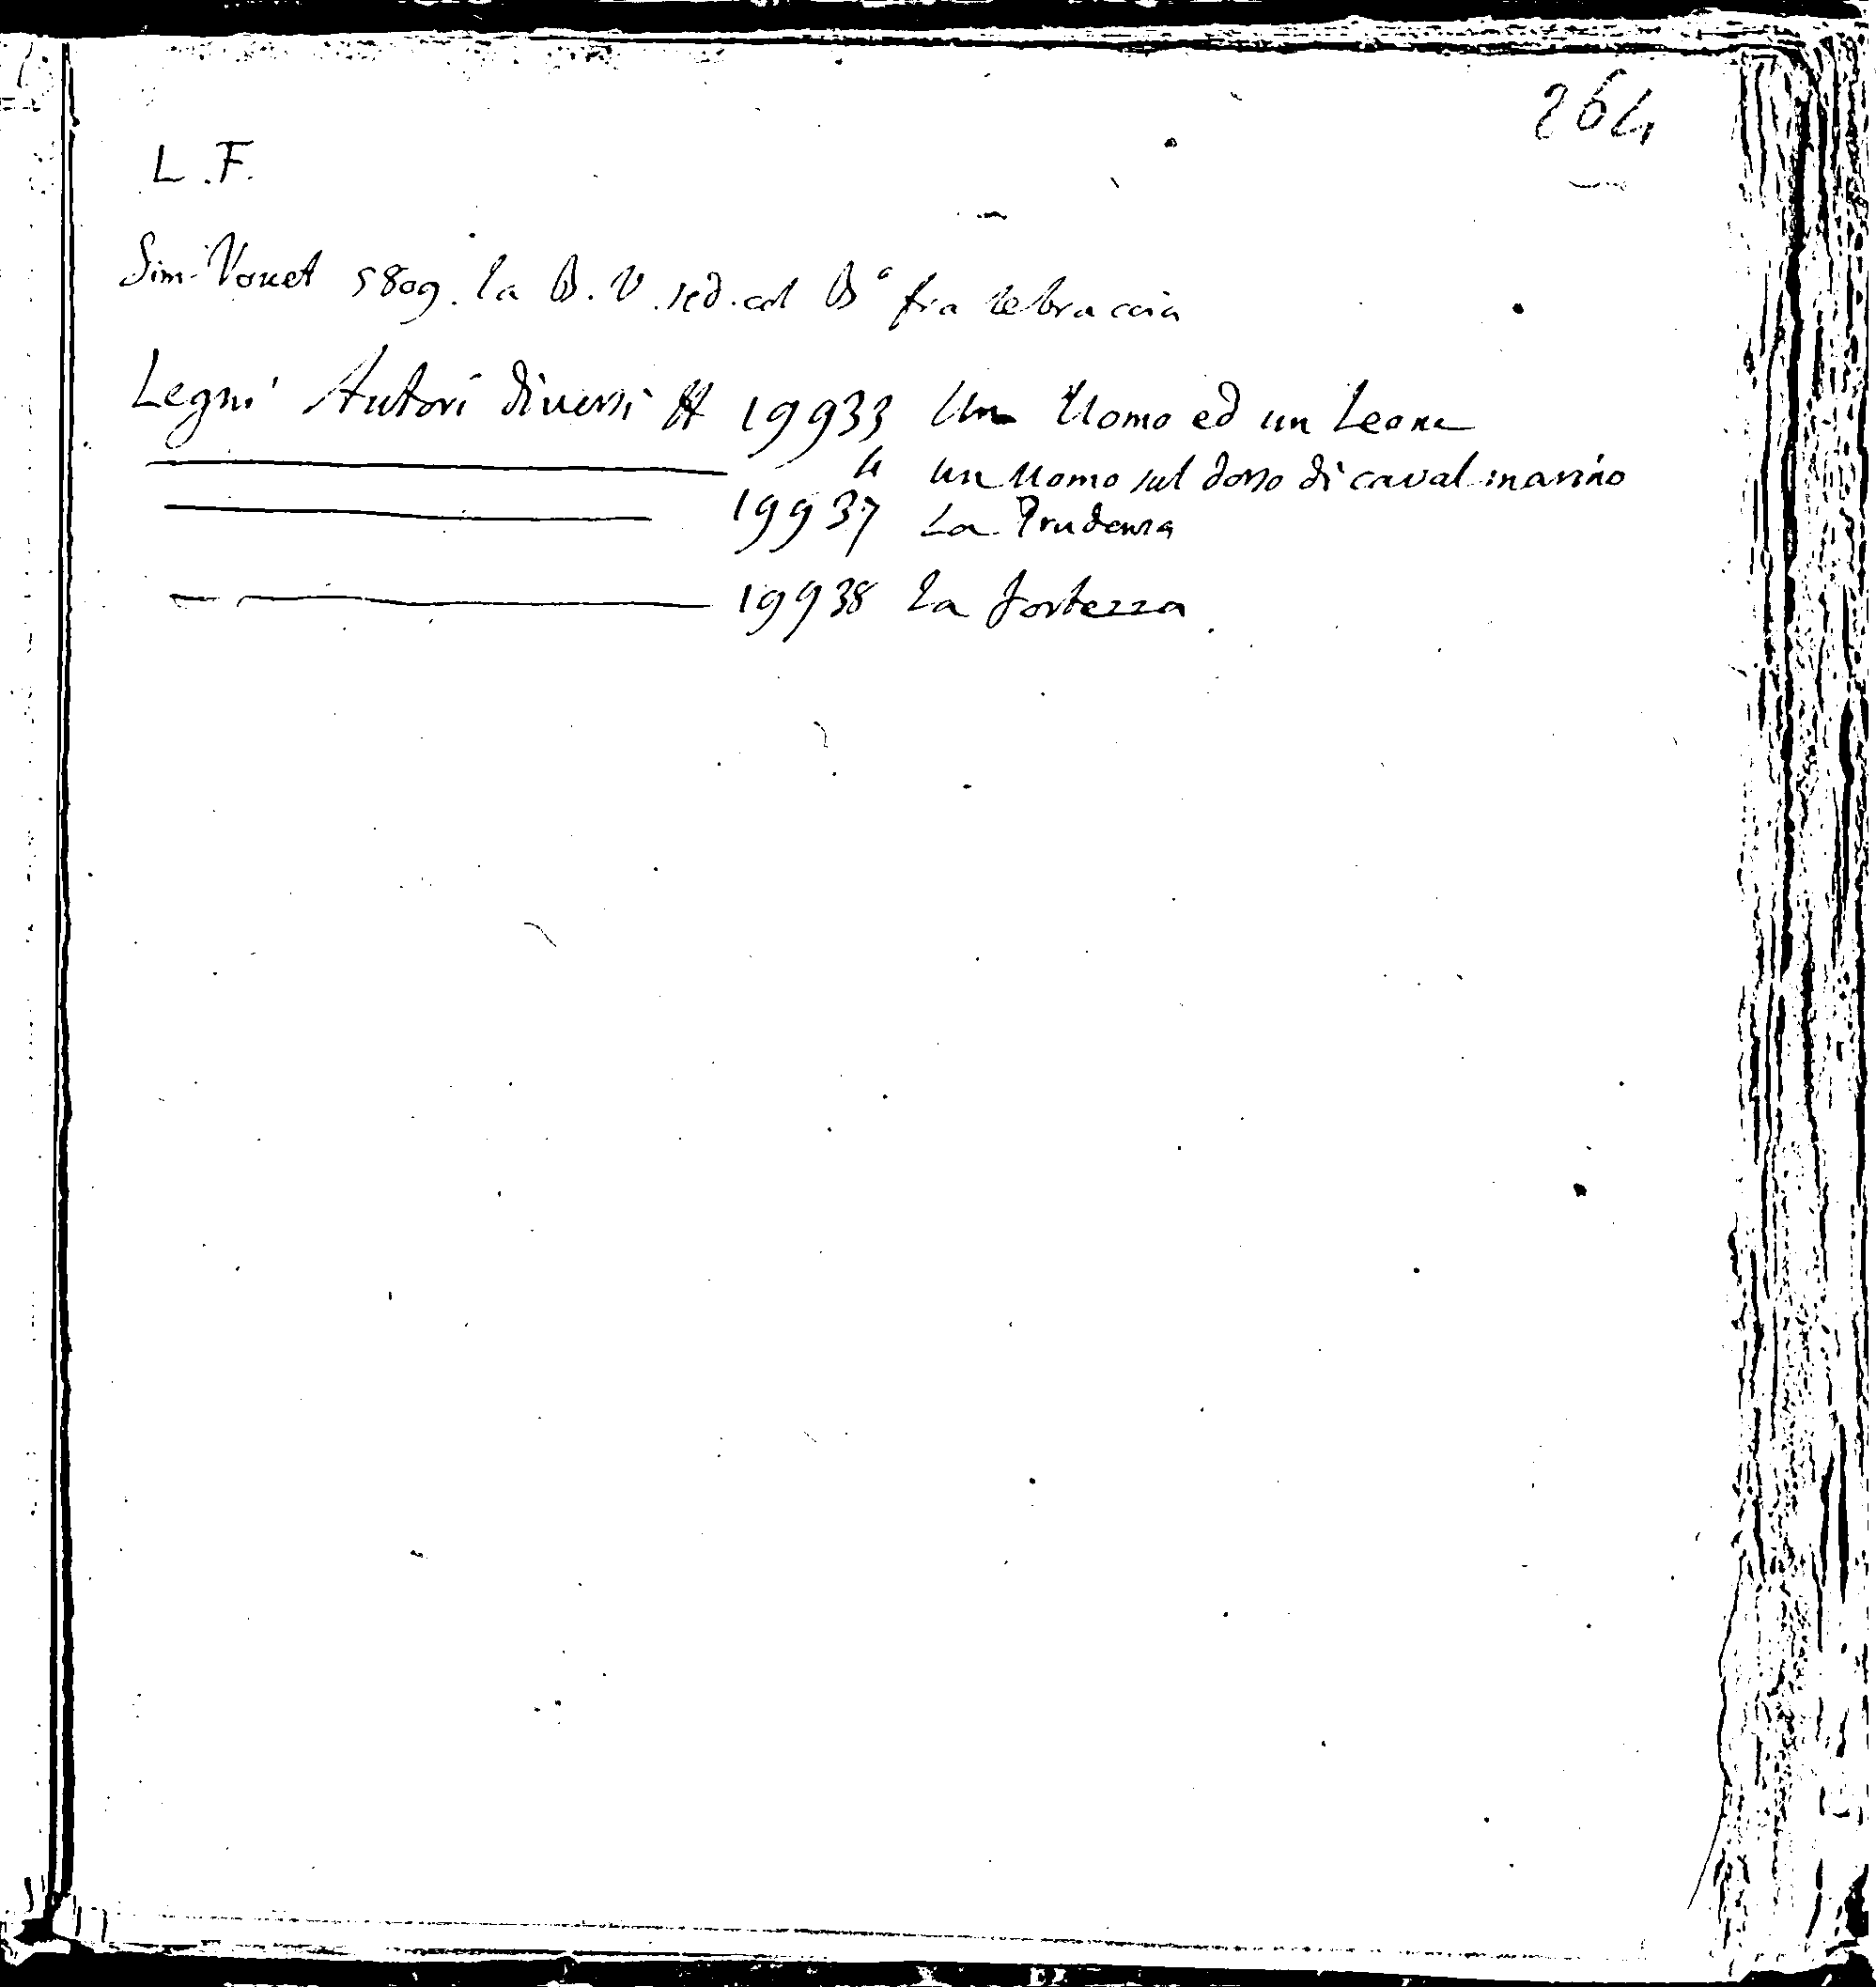 264
L.F.
Sim. Vouet 5809. la B. V. sed. col B° fra le braccia
Legni Autori diversi 19933 Un Uomo ed un Leone
4 un uomo sul dorso di caval marino
19937 La Prudenza
19938 la fortezza